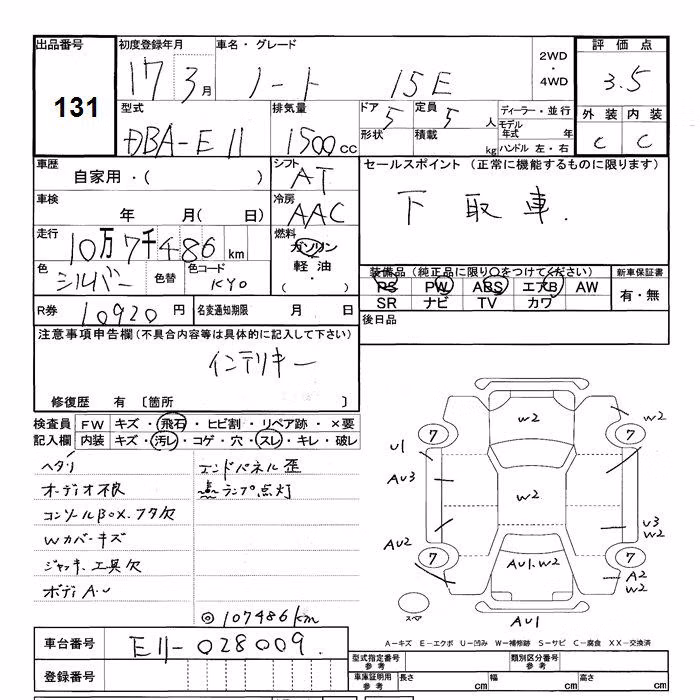 出品番号 初度登録年月 車名・グレード 評価点
131
17 3月 ノート 15E
2WD
・
4WD
3.5
型式 排気量 ドア 5 定員 5 人 ディーラー・並行 外装 内装
DBA-E11 1500cc 形状 積載 kg モデル年式 年 C C
ハンドル 左・右
車歴 シフト セールスポイント (正常に機能するものに限ります)
自家用・( ) AT
下取車.
車検 冷房
年 月( 日) AAC
走行 燃料
10万7千486km ガソリン
色 シルバー 色替 色コード KY0 軽油
・
( )
装備品 (純正品に限り○をつけてください) 新車保証書
PS PW ABS エアB AW 有・無
SR ナビ TV カワ
R券 10920円 名変通知期限 月 日 後日品
注意事項申告欄 (不具合内容等は具体的に記入して下さい)
インテリキー
修復歴 有 〔箇所 〕
検査員 FW キズ・飛石・ヒビ割・リペア跡・×要
記入欄 内装 キズ・汚レ・コゲ・穴・スレ・キレ・破レ
ヘタリ エンドパネル歪
オーディオ不良 ランプ点灯
コンソールBOX.フタ欠
Wカバーキズ
ジャッキ.工具欠
ボディA.U
◎107486km
W2
W2
7 7
U1
AU3
W2
AU2 U3
W2
7 7
AU1.W2
A2
W2
スペア
AU1
A-キズ E-エクボ U-凹み W-補修跡 S-サビ C-腐食 XX-交換済
車台番号 E11-028009.
登録番号
型式指定番号 参考 類別区分番号 参考
車庫証明用 参考 長さ cm 幅 cm 高さ cm